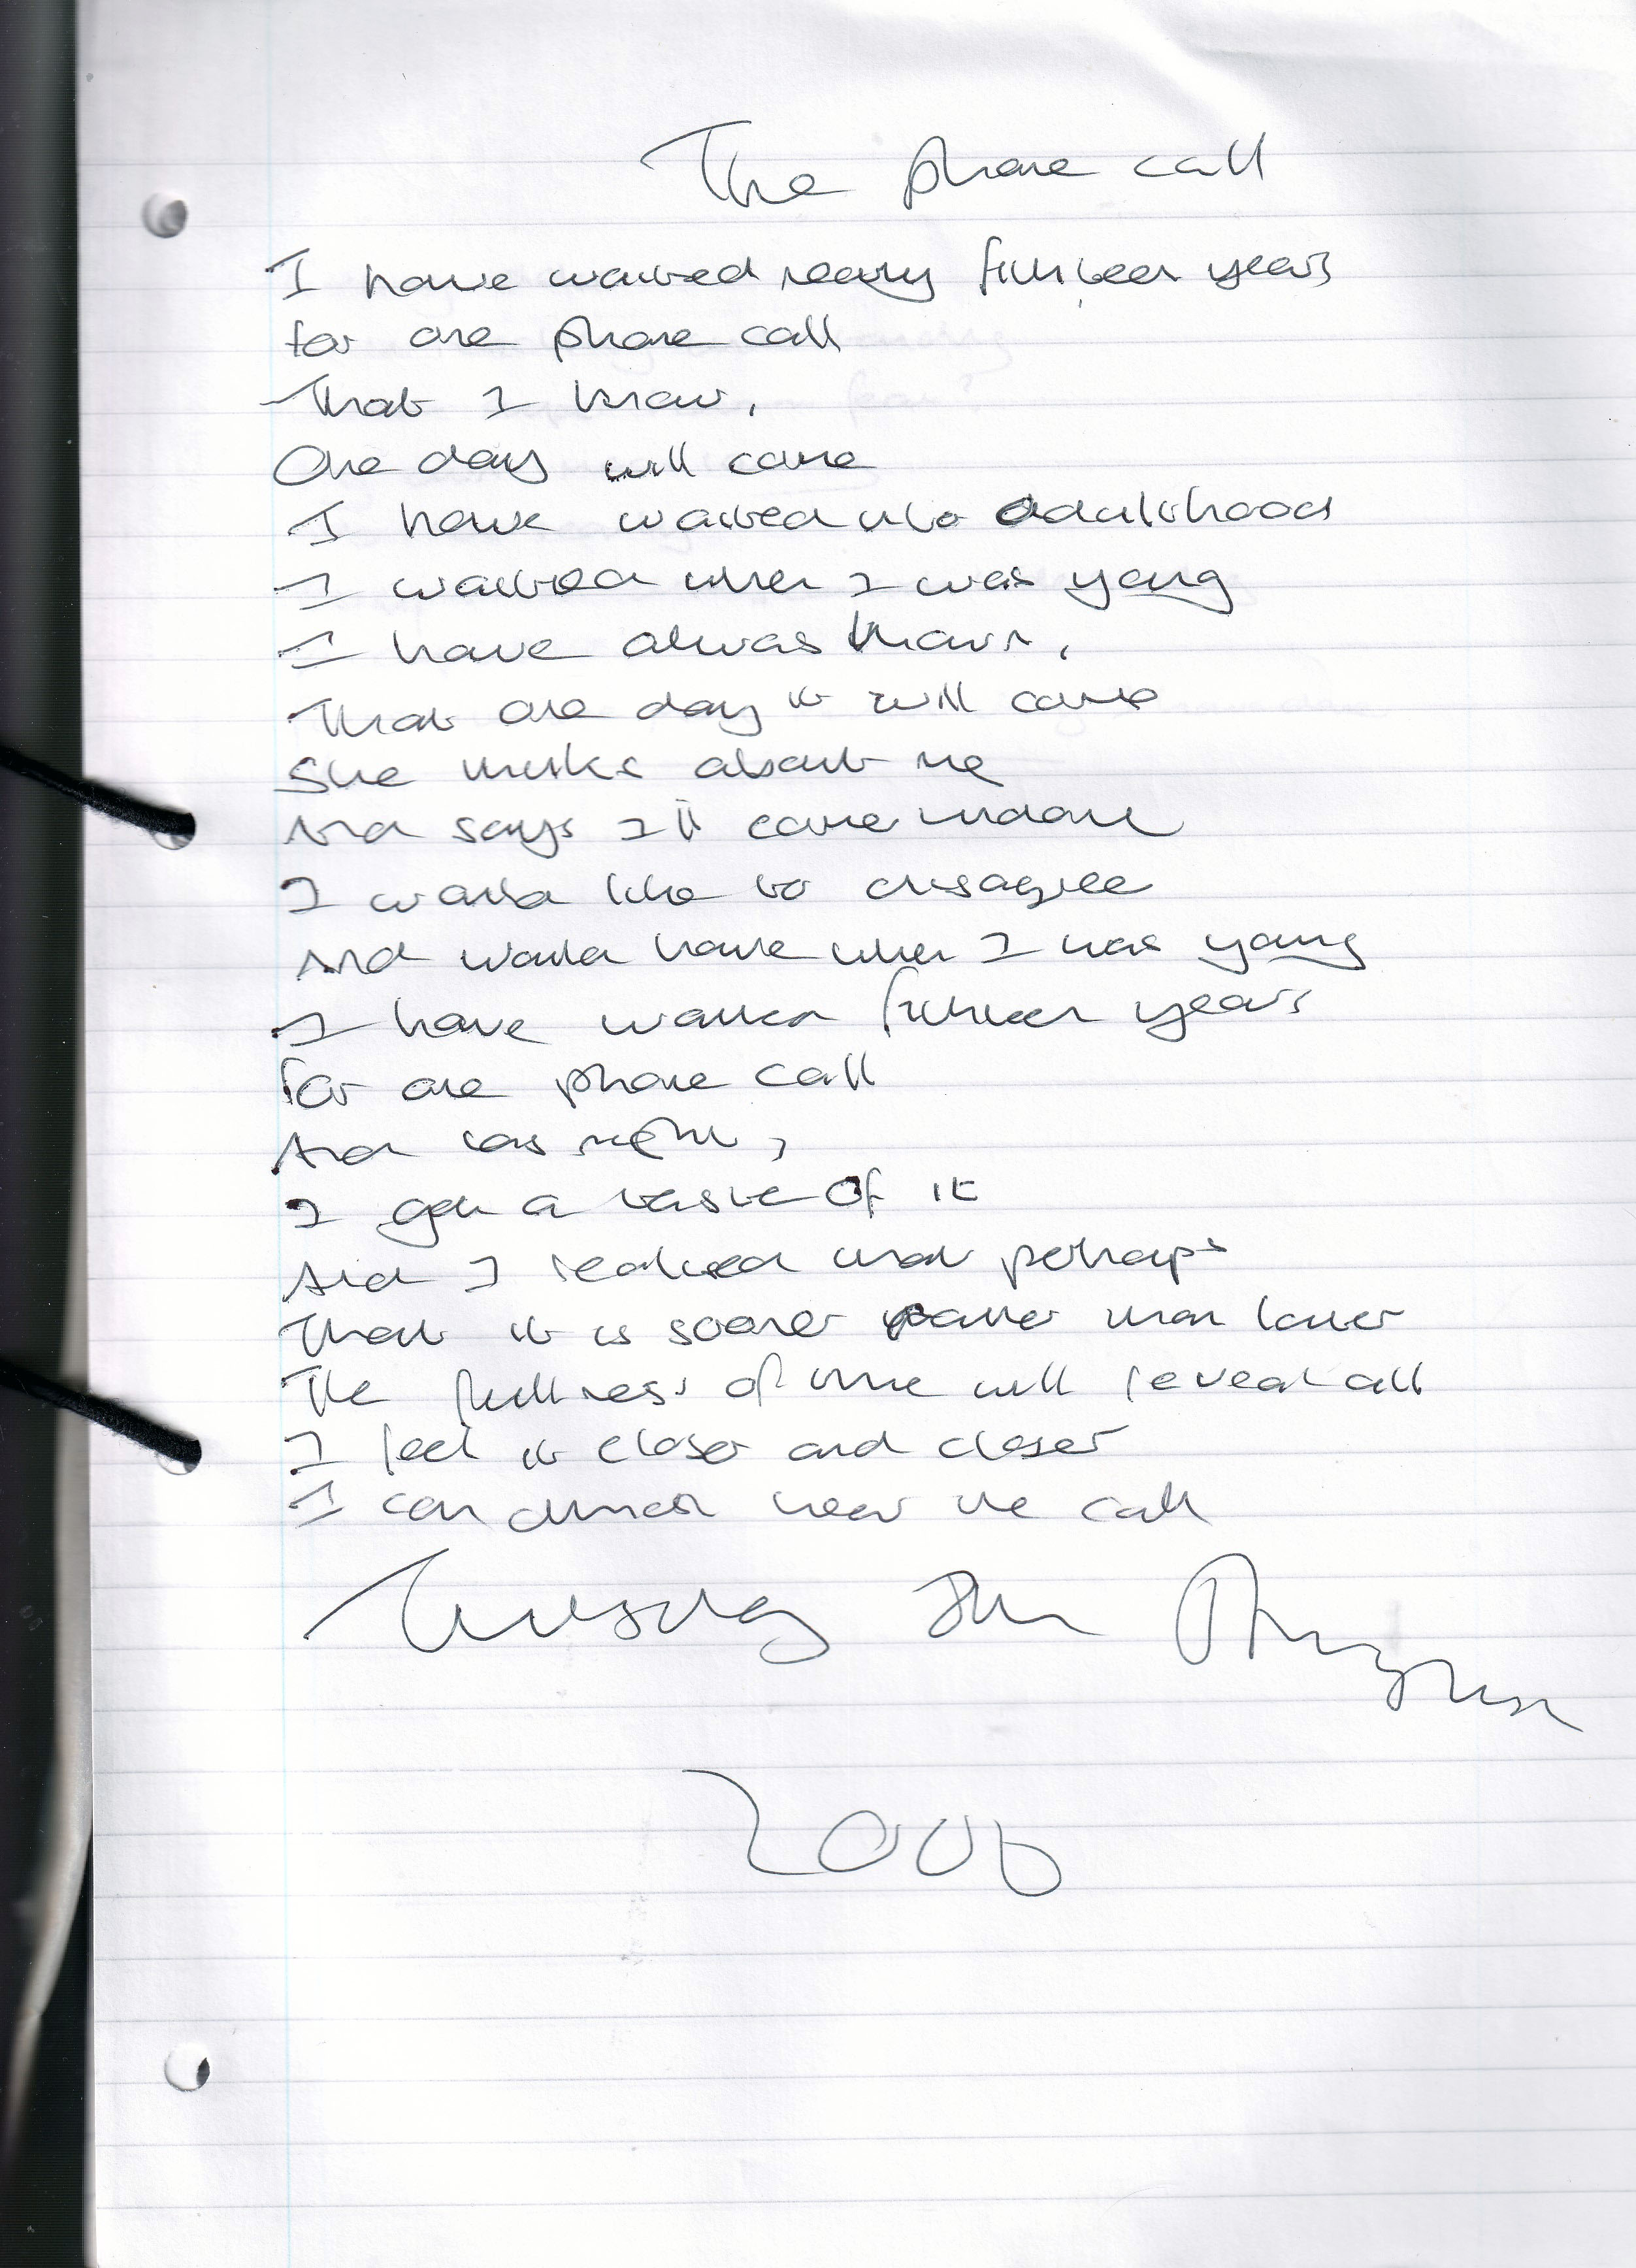 The phone call
I have waited nearly fifteen years
for one phone call
That I know,
One day will come
I have waited into adulthood
I waited when I was young
I have always known,
That one day it will come
She thinks about me
And says I'll come undone
I would like to disagree
And would have when I was young
I have waited fifteen years
For one phone call
And last night,
I got a taste of it
And I realised that perhaps
That it is sooner rather than later
The fullness of time will reveal all
I feel it closer and closer
I can almost hear the call
Tuesday
2006